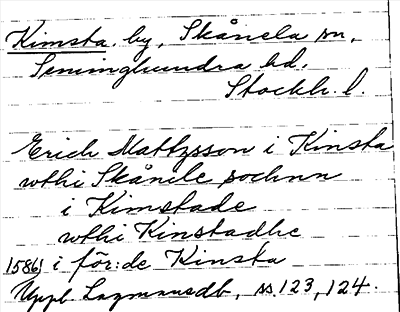 Kimsta. by, Skånela sn,
Seminghundra hd.
Stockh. l.
Erich Mattzsson i Kinsta
wthi Skånile sochnn
i Kimstade
wthi Kinstadhe
1586 i för:de Kinsta
Uppl Lagmansdb, ss. 123, 124.